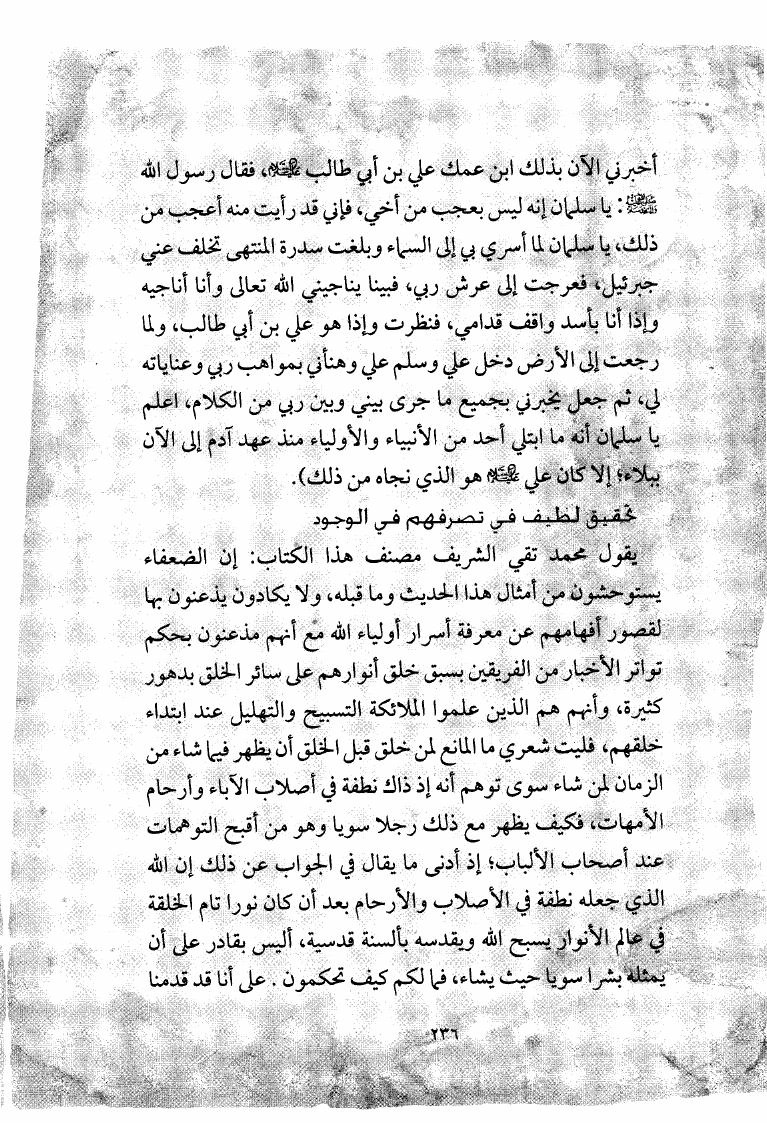 أخبرني الآن بذلك ابن عمك علي بن أبي طالب عليه السلام، فقال رسول الله
ﷺ: يا سلمان إنه ليس بعجب من أخي، فإني قد رأيت منه أعجب من
ذلك، يا سلمان لما أسري بي إلى السماء وبلغت سدرة المنتهى تخلف عني
جبرئيل، فعرجت إلى عرش ربي، فبينا يناجيني الله تعالى وأنا أناجيه
وإذا أنا بأسد واقف قدامي، فنظرت وإذا هو علي بن أبي طالب، ولما
رجعت إلى الأرض دخل علي وسلم علي وهنأني بمواهب ربي وعناياته
لي، ثم جعل يخبرني بجميع ما جرى بيني وبين ربي من الكلام، اعلم
يا سلمان أنه ما ابتلي أحد من الأنبياء والأولياء منذ عهد آدم إلى الآن
ببلاء؛ إلا كان علي عليه السلام هو الذي نجاه من ذلك).
تحقيق لطيف في تصرفهم في الوجود
يقول محمد تقي الشريف مصنف هذا الكتاب: إن الضعفاء
يستوحشون من أمثال هذا الحديث وما قبله، ولا يكادون يذعنون بها
لقصور أفهامهم عن معرفة أسرار أولياء الله مع أنهم مذعنون بحكم
تواتر الأخبار من الفريقين بسبق خلق أنوارهم على سائر الخلق بدهور
كثيرة، وأنهم هم الذين علموا الملائكة التسبيح والتهليل عند ابتداء
خلقهم، فليت شعري ما المانع لمن خلق قبل الخلق أن يظهر فيما شاء من
الزمان لمن شاء سوى توهم أنه إذ ذاك نطفة في أصلاب الآباء وأرحام
الأمهات، فكيف يظهر مع ذلك رجلا سويا وهو من أقبح التوهمات
عند أصحاب الألباب؛ إذ أدنى ما يقال في الجواب عن ذلك إن الله
الذي جعله نطفة في الأصلاب والأرحام بعد أن كان نورا تام الخلقة
في عالم الأنوار يسبح الله ويقدسه بألسنة قدسية، أليس بقادر على أن
يمثله بشرا سويا حيث يشاء، فما لكم كيف تحكمون . على أنا قد قدمنا
٢٣٦